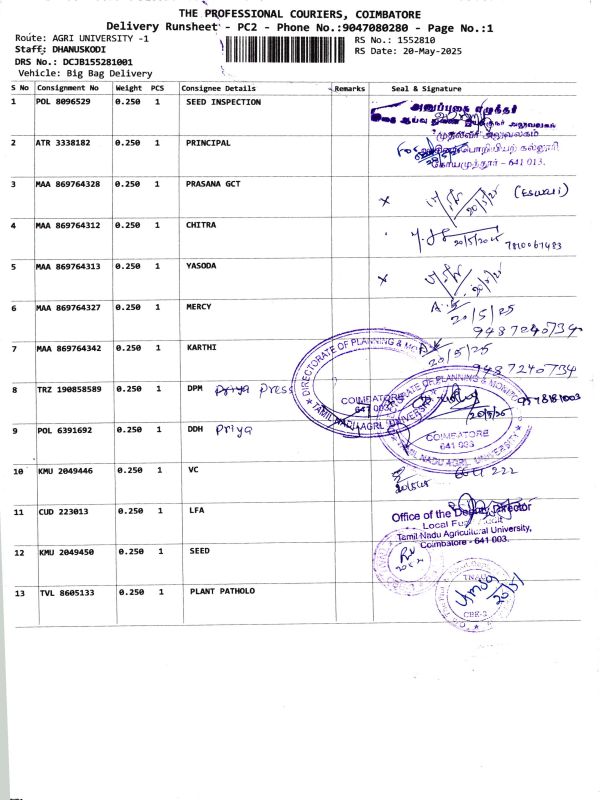 THE PROFESSIONAL COURIERS, COIMBATORE
Delivery Runsheet - PC2 - Phone No.:9047080280 - Page No.:1
Route: AGRI UNIVERSITY -1
RS No.: 1552810
Staff: DHANUSKODI
RS Date: 20-May-2025
DRS No.: DCJB155281001
Vehicle: Big Bag Delivery
S No Consignment No Weight PCS Consignee Details Remarks Seal & Signature
1 POL 8096529 0.250 1 SEED INSPECTION
அனுப்புகை எழுத்தர்
2 ATR 3338182 0.250 1 PRINCIPAL
முதல்வர் அலுவலகம்
கோயமுத்தூர் - 641 013.
3 MAA 869764328 0.250 1 PRASANA GCT
20/5/25 (Eswari)
4 MAA 869764312 0.250 1 CHITRA
20/5/2025 7810067483
5 MAA 869764313 0.250 1 YASODA
6 MAA 869764327 0.250 1 MERCY
20/5/25
9487240734
7 MAA 869764342 0.250 1 KARTHI
20/5/25
9487240734
DIRECTORATE OF PLANNING & MONITORING
COIMBATORE
641 003
TAMIL NADU AGRL. UNIVERSITY
8 TRZ 190858589 0.250 1 DPM Priya Press
20/5/25 9578181003
9 POL 6391692 0.250 1 DDH Priya
COIMBATORE
641 003
TAMIL NADU AGRL. UNIVERSITY
10 KMU 2049446 0.250 1 VC
222
11 CUD 223013 0.250 1 LFA
Office of the Deputy Director
Local Fund Audit
Tamil Nadu Agricultural University,
Coimbatore - 641 003.
12 KMU 2049450 0.250 1 SEED
13 TVL 8605133 0.250 1 PLANT PATHOLO
TNAU
CBE-3